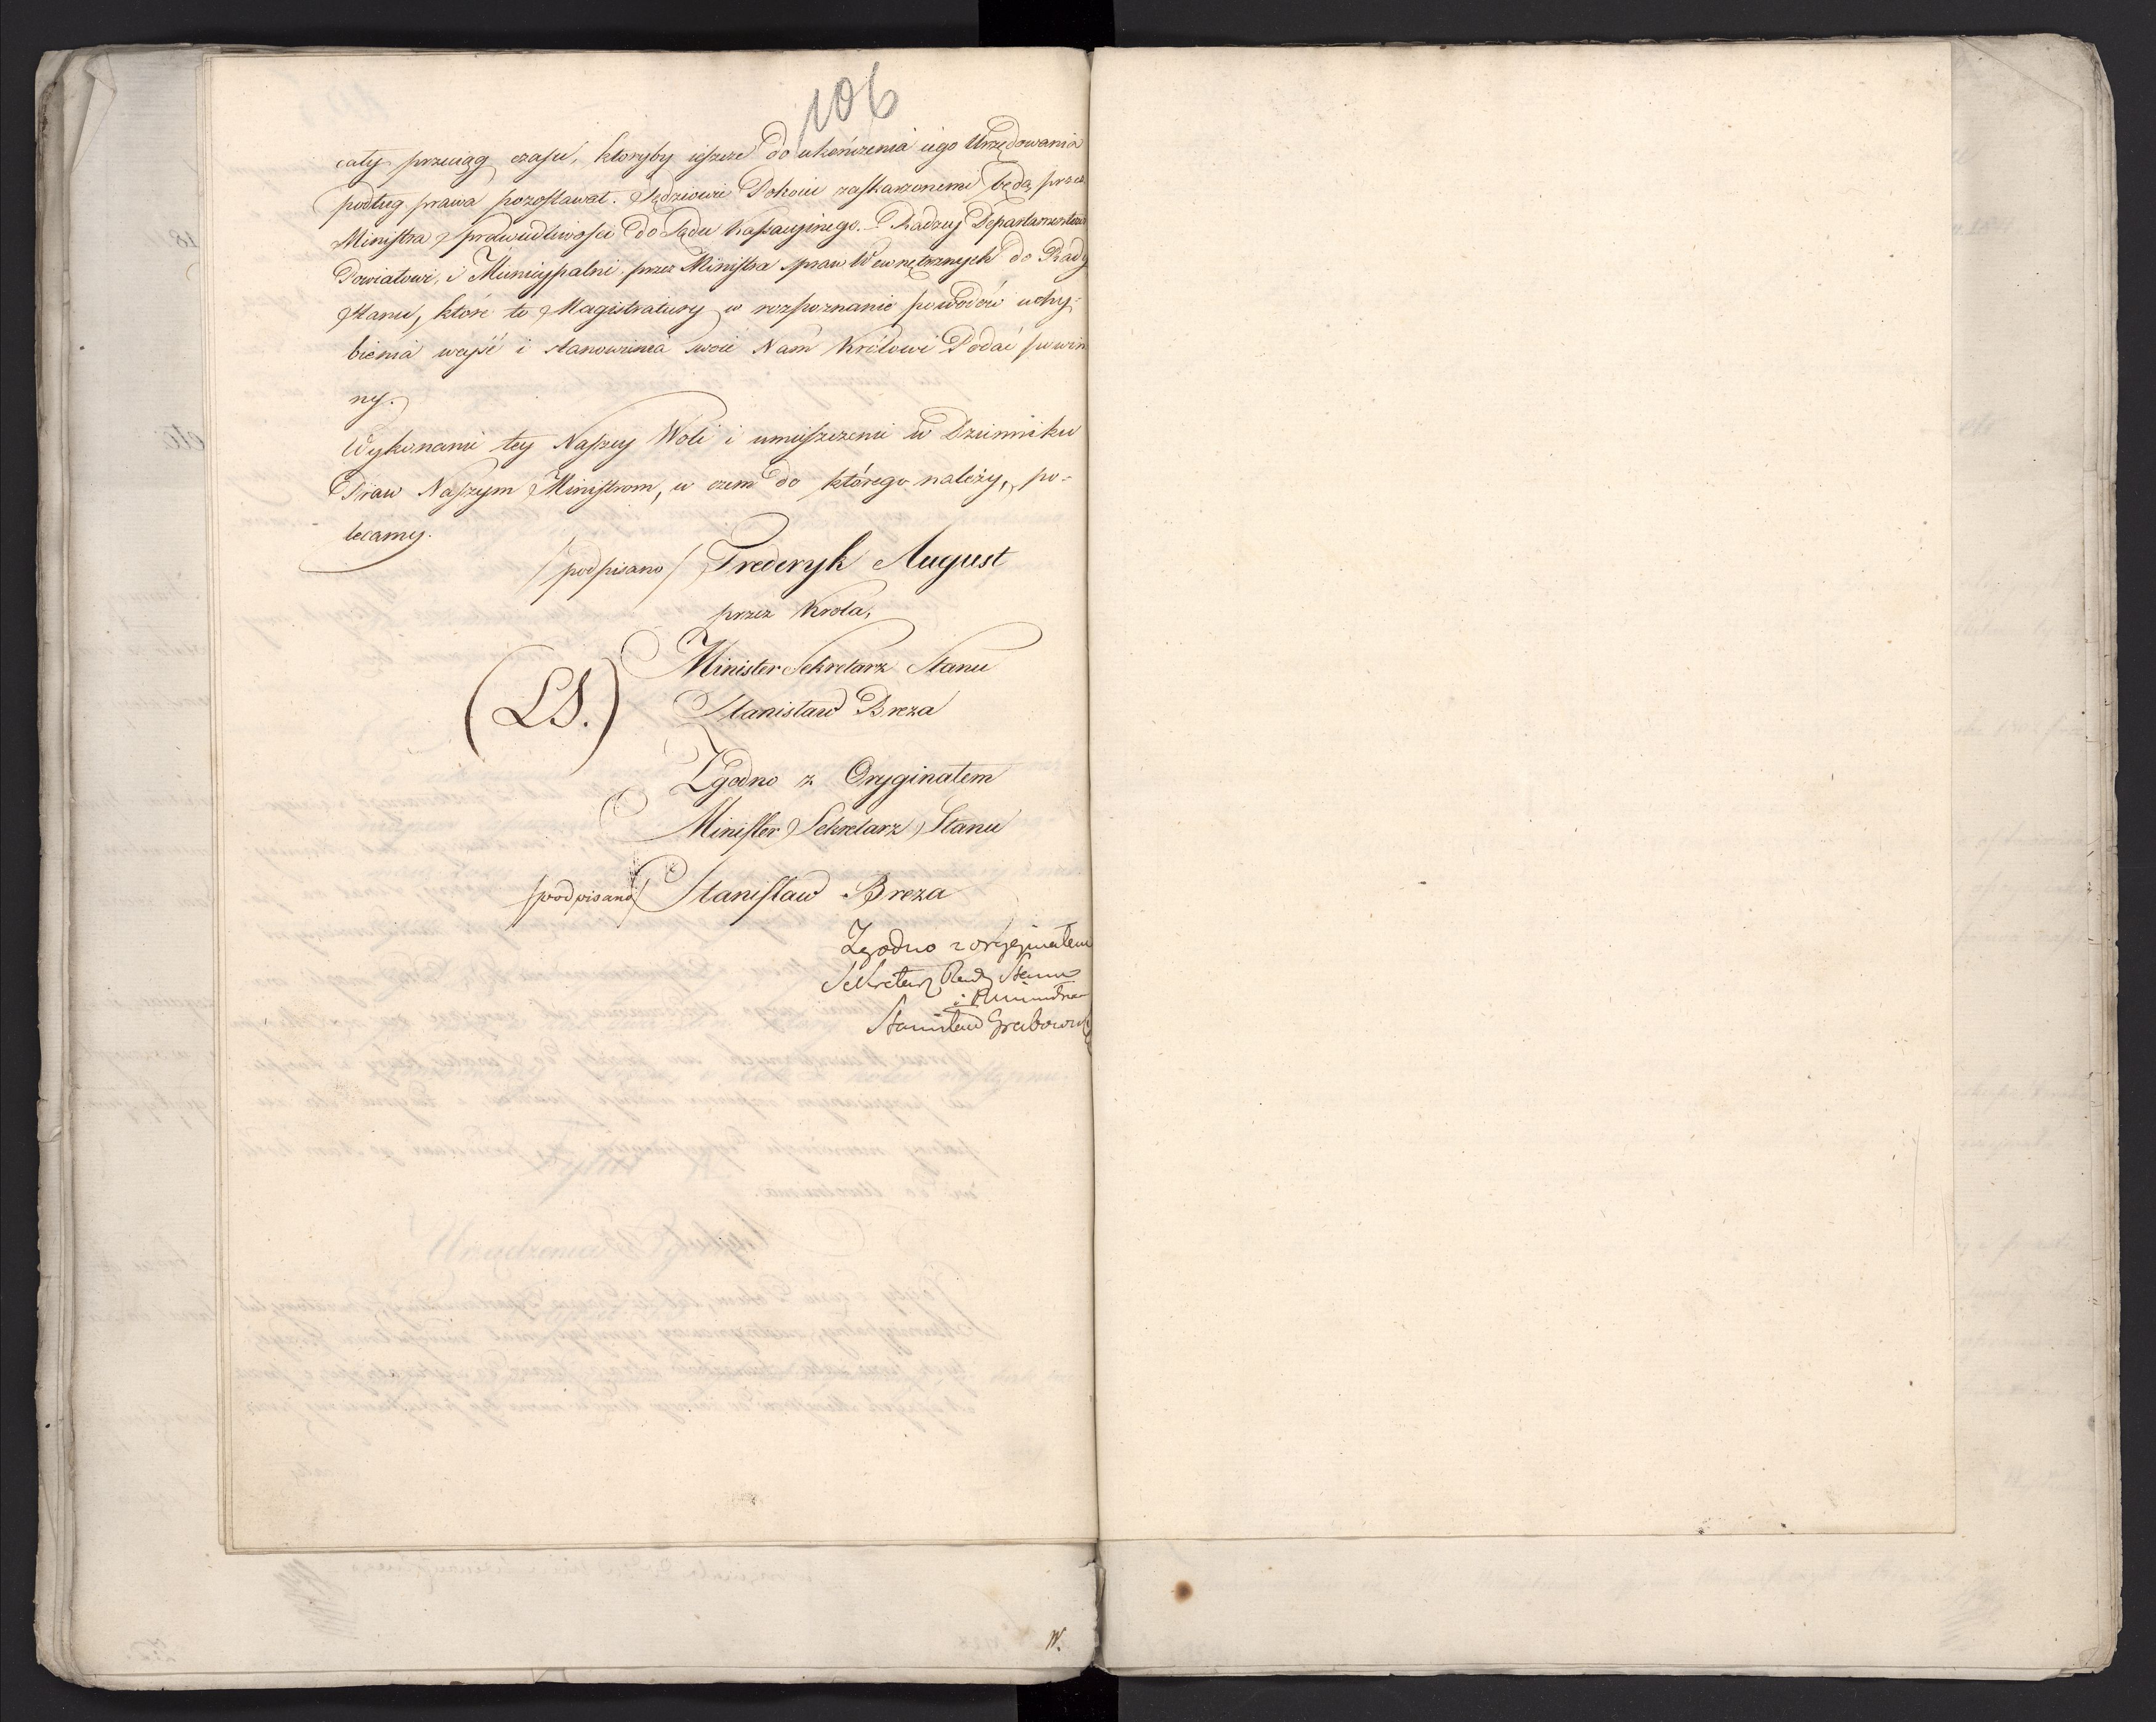 106
cały przeciąg czasu, ktoryby ieszcze do ukończenia iego Urzędowania
podług prawa pozostawał. Sędziowie Pokoiu zaskarzonemi będą przez
Ministra Sprawiedliwości do Sądu Kassacyinego. Radzcy Departamentowi
Powiatowi, i Municypalni przez Ministra spraw Wewnętrznych do Rady
Stanu, które to Magistratury w rozpoznanie powodów uchy-
bienia weyść i stanowienia swoie Nam Królowi Podać powin
ny.
Wykonanie tey Naszey Woli i umieszczenie w Dzienniku
Praw Naszym Ministrom, w czem do którego należy, po-
lecamy.
/podpisano/ Frederyk August
przez Krola,
Minister Sekretarz Stanu
(LS.) Stanisław Breza
Zgodno z Oryginałem
Minister Sekretarz Stanu
/podpisano/ Stanisław Breza
Zgodno z oryginałem
Sekretarz Rady Stanu
i Ministrów
Stanisław Grabowski
W.